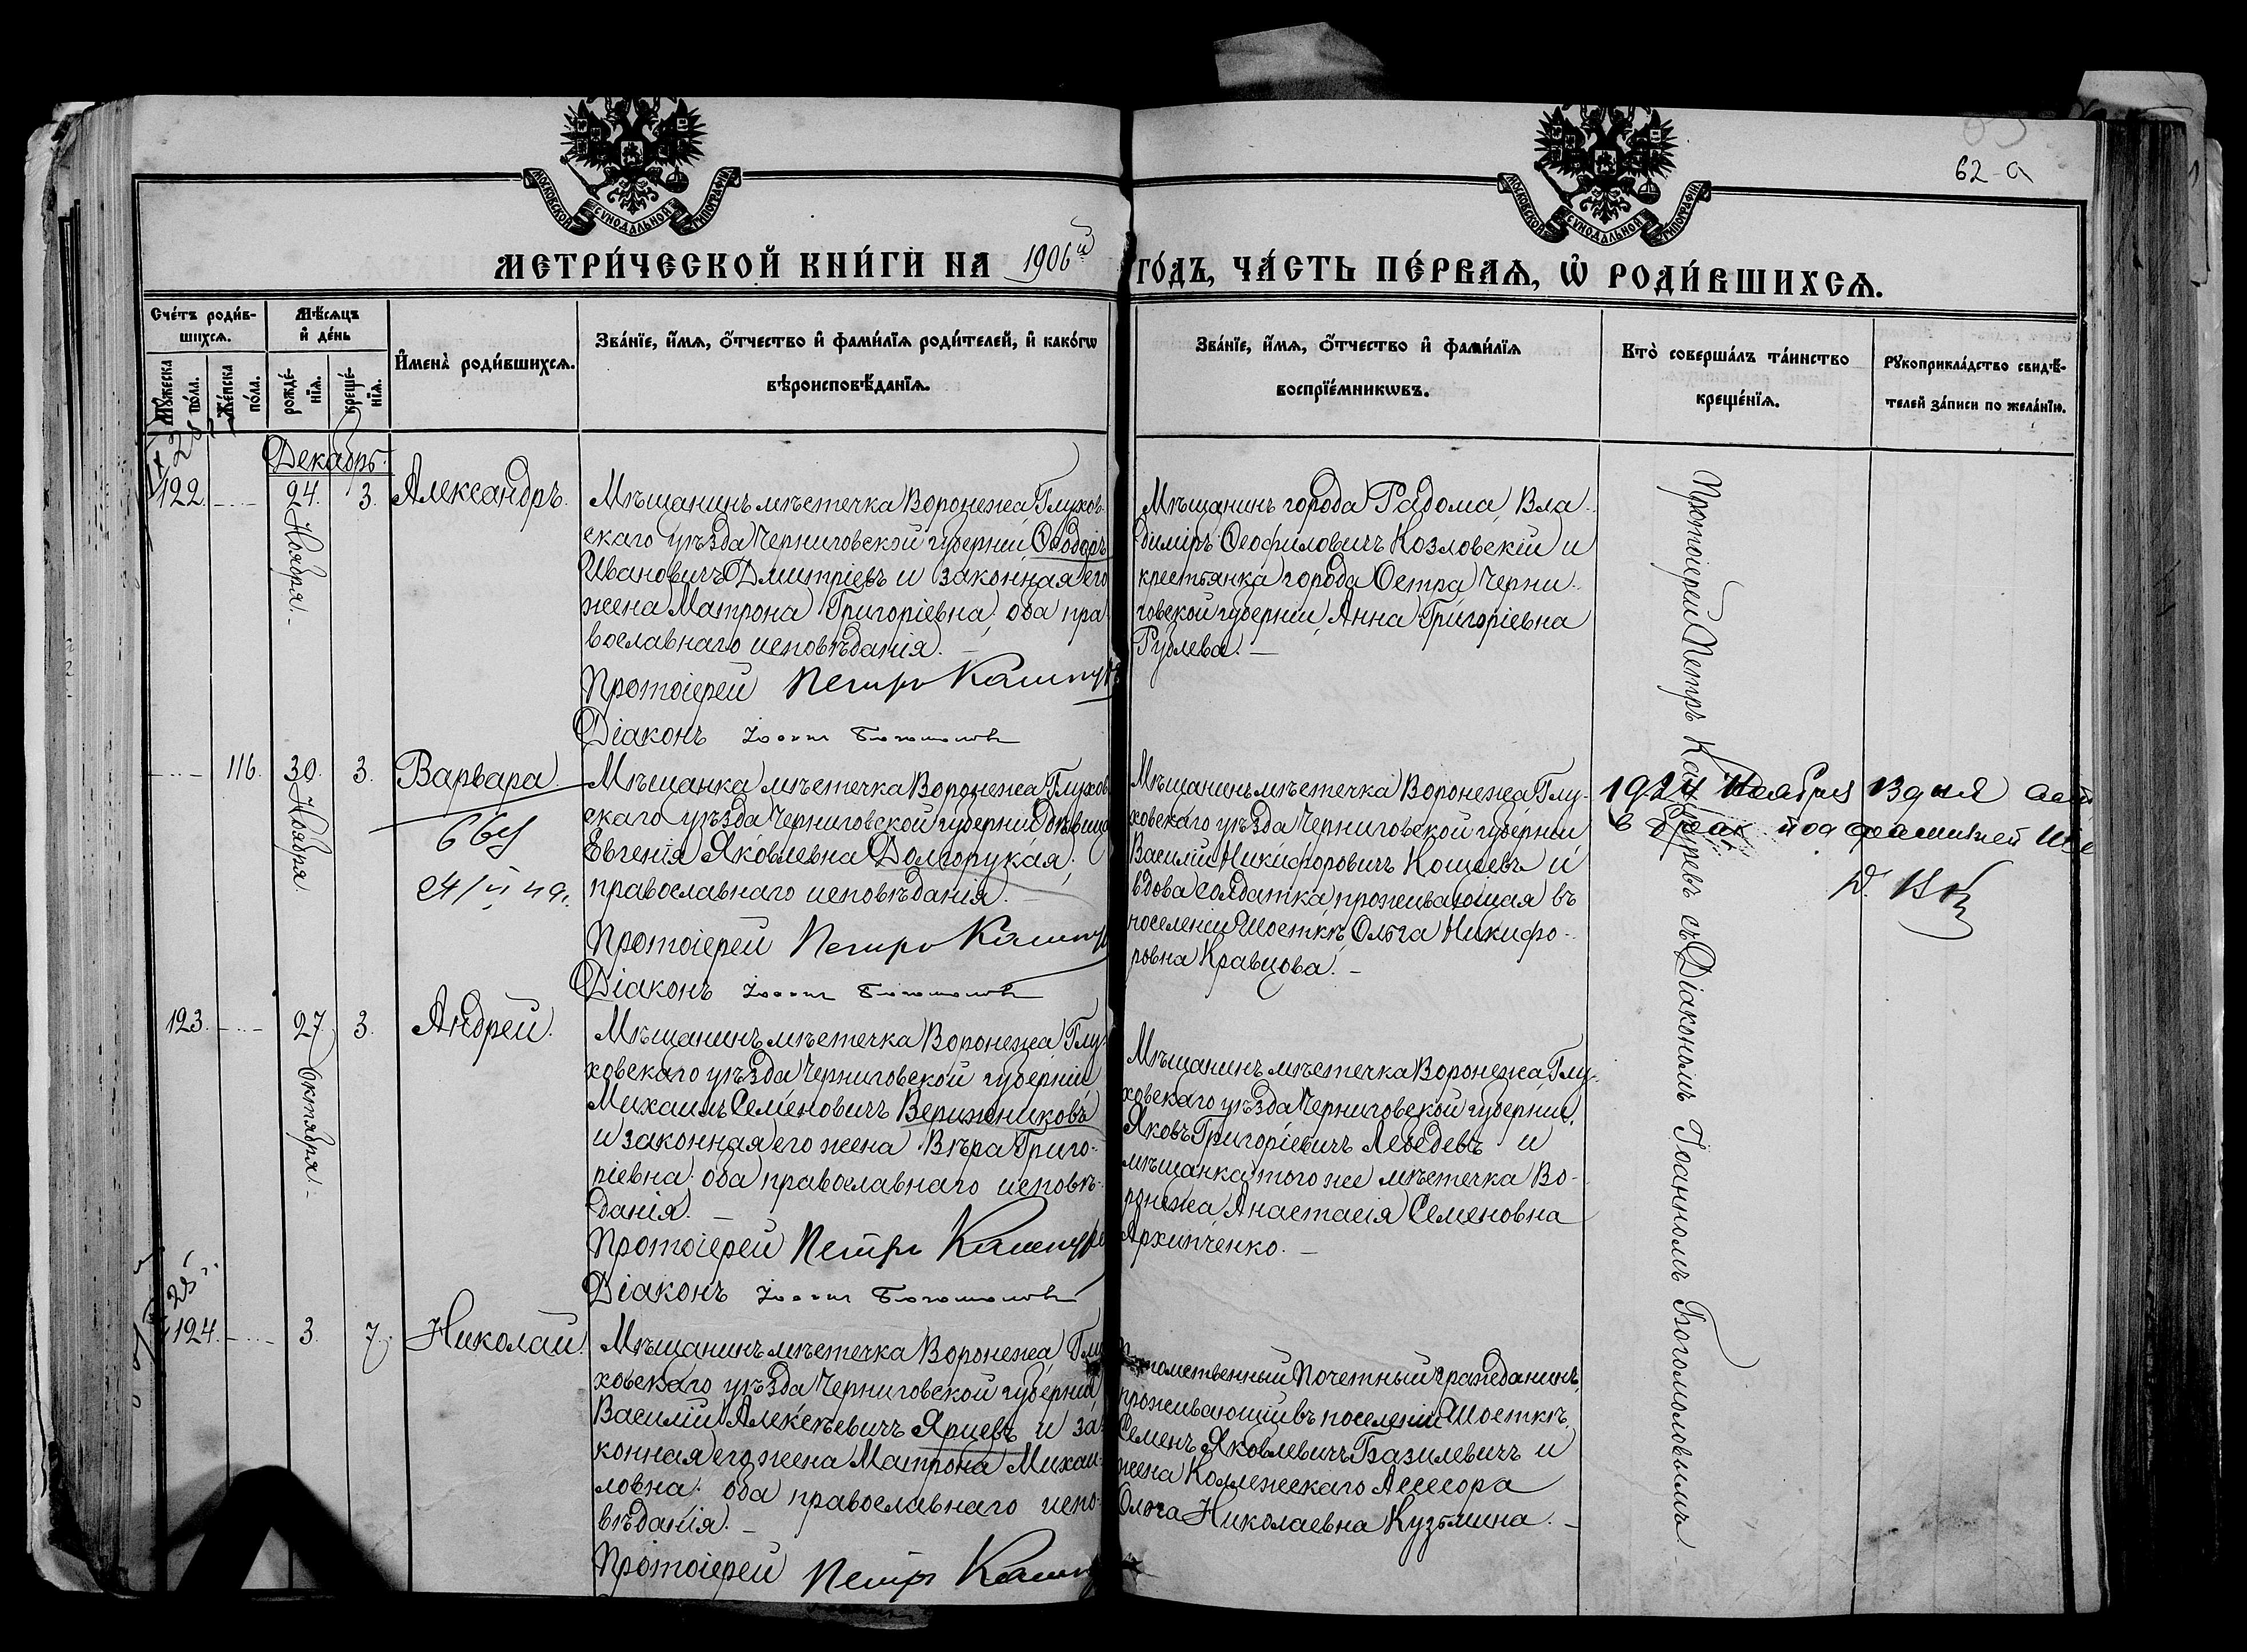 МОСКОВСКОЙ СУНОДАЛЬНОЙ ТИПОГРАФІИ
МОСКОВСКОЙ СУНОДАЛЬНОЙ ТИПОГРАФІИ
62-а
МЕТРИ́ЧЕСКОЙ КНИ́ГИ НА 1906й ГО́ДЪ, ЧА́СТЬ ПЕ́РВАѦ, Ѡ҆ РОДИ́ВШИХСѦ.
Сче́тъ роди́в-
шихсѧ.
Мꙋ́жеска по́ла.
Же́нска по́ла.
Мѣ́сѧцъ
и҆ де́нь
рожде́-
нїѧ.
креще́-
нїѧ.
И҆мена̀ роди́вшихсѧ.
Зва́нїе, и҆́мѧ, ѻ҆́тчество и҆ фами́лїѧ роди́телей, и҆ како́гѡ
вѣроисповѣ́данїѧ.
Зва́нїе, и҆́мѧ, ѻ҆́тчество и҆ фами́лїѧ
воспрїе́мникѡвъ.
Кто̀ соверша́лъ та́инство
креще́нїѧ.
Рꙋкоприкла́дство свидѣ́-
телей за́писи по жела́нїю.
Декабрь.
122. 24. Ноября. 3. Александръ.
Мѣщанинъ мѣстечка Воронежа, Глухов-
скаго уѣзда Черниговской губерніи, Ѳеодоръ
Ивановичъ Дмитріевъ и законная его
жена Матрона Григоріевна; оба пра-
вославнаго исповѣданія.
Протоіерей Петръ
Діаконъ
Мѣщанинъ города Радома, Вла-
диміръ Ѳеофиловичъ Козловскій и
крестьянка города Остра, Черни-
говской губерніи, Анна Григоріевна
Рублева.
116. 30. Ноября 3. Варвара
Мѣщанка мѣстечка Воронежа Глухов-
скаго уѣзда Черниговской губерніи Дѣвица
Евгенія Яковлевна Долгорукая;
православнаго исповѣданія.
Протоіерей Петръ
Діаконъ
Мѣщанинъ мѣстечка Воронежа, Глу-
ховскаго уѣзда Черниговской губерніи
Василій Никифоровичъ Кощіевъ и
вдова солдатка, проживающая въ
поселеніи Шосткѣ, Ольга Никифо-
ровна Кравцова.
1924 Ноября 13 дня
в брак под фамилией
123. 27 Октября. 3. Андрей.
Мѣщанинъ мѣстечка Воронежа, Глу-
ховскаго уѣзда Черниговской губерніи
Михаилъ Семеновичъ Верижниковъ
и законная его жена Вѣра Григо-
ріевна; оба православнаго исповѣ-
данія.
Протоіерей Петръ
Діаконъ
Мѣщанинъ мѣстечка Воронежа, Глу-
ховскаго уѣзда Черниговской губерніи,
Яковъ Григоріевичъ Лебедевъ и
мѣщанка того же мѣстечка Во-
ронежа Анастасія Семеновна
Архипченко.
124. 3. 7. Николай.
Мѣщанинъ мѣстечка Воронежа, Глу-
ховскаго уѣзда Черниговской губерніи
Василій Алексѣевичъ Ярцевъ и за-
конная его жена Матрона Михаи-
ловна; оба православнаго испо-
вѣданія.
Протоіерей Петръ
Потомственный Почетный Гражданинъ,
проживающій въ поселеніи Шосткѣ,
Семенъ Яковлевичъ Базилевичъ и
жена Коллежскаго Ассесора
Ольга Николаевна Кузьмина.
Протоіерей Петръ съ Діакономъ Іоанномъ Богомоловымъ.